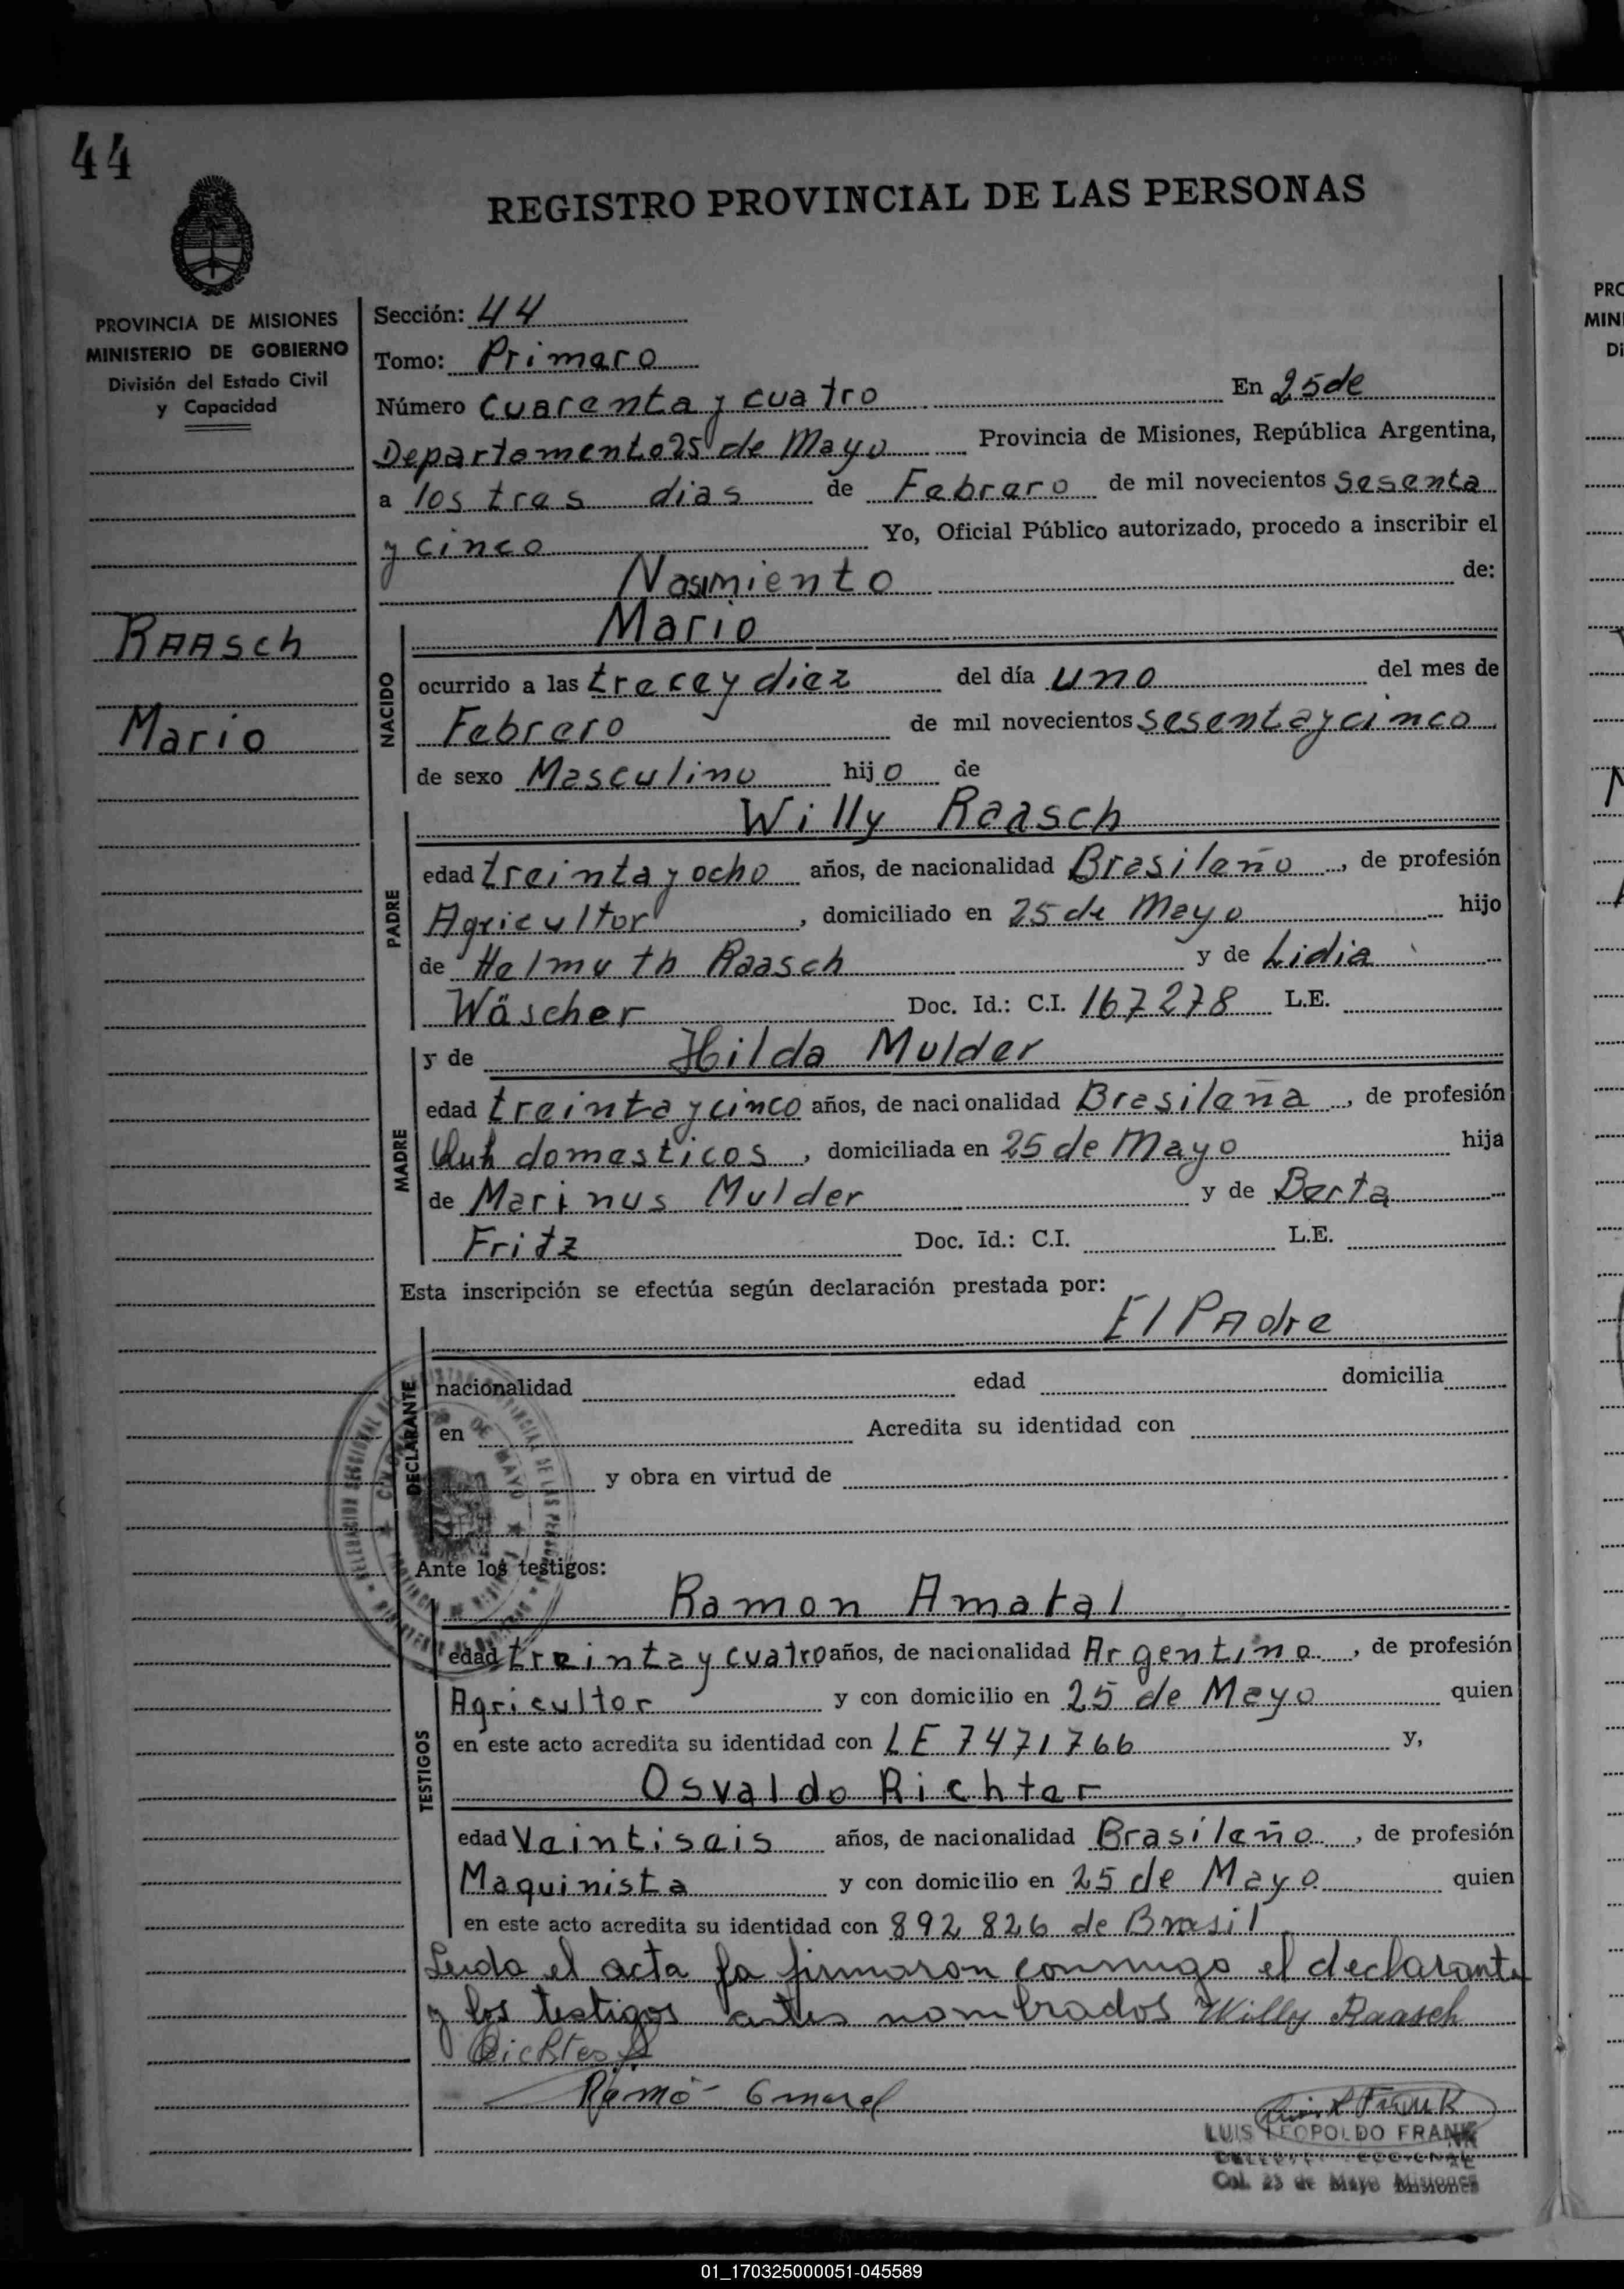 44
REGISTRO PROVINCIAL DE LAS PERSONAS
PROVINCIA DE MISIONES
MINISTERIO DE GOBIERNO
División del Estado Civil
y Capacidad
RAASch
Mario
Sección: 44
Tomo: Primaro
Número cuarenta y cuatro En 25 de
Departamento 25 de Mayo Provincia de Misiones, República Argentina,
a los tras dias de Febraro de mil novecientos sesenta
y cinco Yo, Oficial Público autorizado, procedo a inscribir el
Nasimiento de:
NACIDO
Mario
ocurrido a las trece y diez del día uno del mes de
Febrero de mil novecientos sesenta y cinco
de sexo Masculino hijo de
PADRE
Willy Raasch
edad treinta y ocho años, de nacionalidad Brasileño, de profesión
Agricultor, domiciliado en 25 de Mayo hijo
de Helmuth Raasch y de Lidia
Wäscher Doc. Id.: C.I. 167278 L.E.
MADRE
y de Hilda Mulder
edad treinta y cinco años, de nacionalidad Brasileña, de profesión
domesticos, domiciliada en 25 de Mayo hija
de Marinus Mulder y de Berta
Fritz Doc. Id.: C.I. L.E.
Esta inscripción se efectúa según declaración prestada por:
El PAdre
DECLARANTE
nacionalidad edad domicilia
en Acredita su identidad con
y obra en virtud de
Ante los testigos:
TESTIGOS
Ramon Amaral
edad treinta y cuatro años, de nacionalidad Argentino, de profesión
Agricultor y con domicilio en 25 de Mayo quien
en este acto acredita su identidad con LE 7471766 y,
Osvaldo Richter
edad Vaintiseis años, de nacionalidad Brasileño, de profesión
Maquinista y con domicilio en 25 de Mayo quien
en este acto acredita su identidad con 892826 de Brasil
Leida el acta la firmaron conmigo el declarante
y los testigos antes nombrados Willy Raasch
LUIS LEOPOLDO FRANK
Col. 25 de Mayo Misiones
01_170325000051-045589